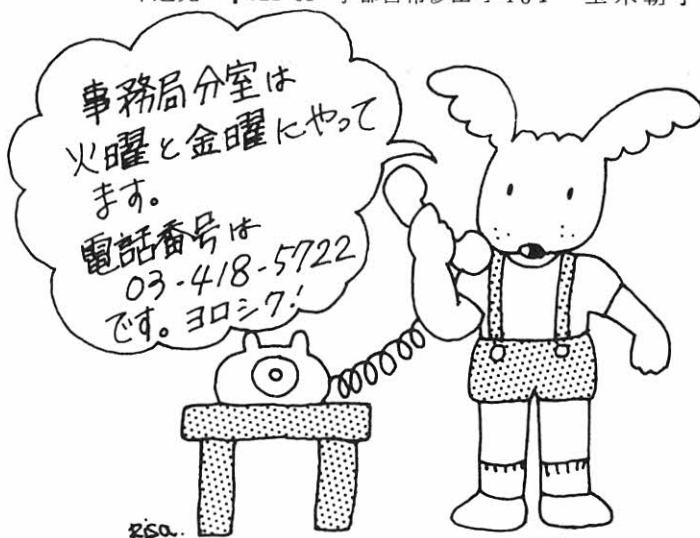 事務局分室は
火曜と金曜にやって
ます。
電話番号は
03-418-5722
です。ヨロシク!
Risa.